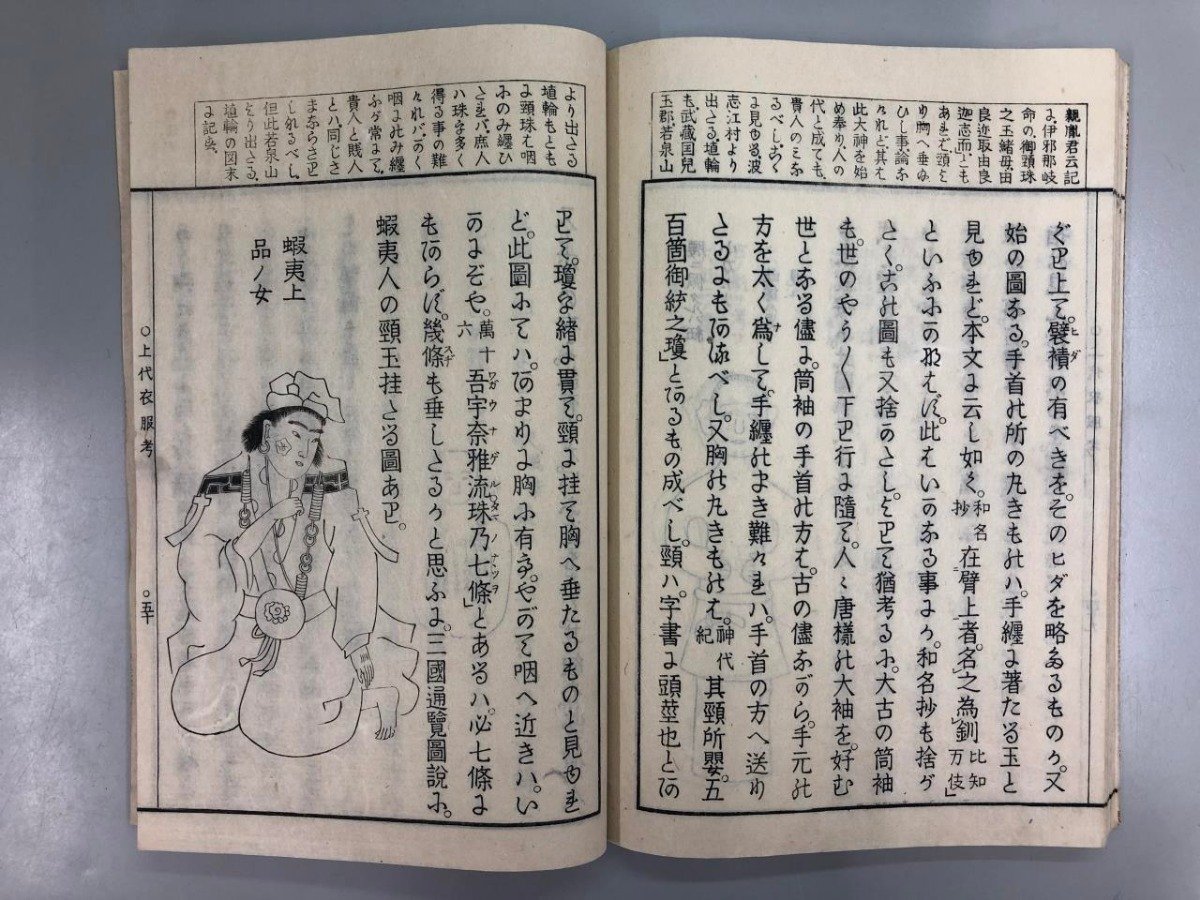 親胤君云記
に、伊邪那岐
命の、御頸珠
之玉緒母、由
良迩取由良
迦志而、とも
あるは、頸よ
り胸へ垂
ひし事論
かれど、其は
此大神を始
め奉り、人の
代と成ても、
貴人のミな
るべし、かく
に見ゆる、波
志江村より
出たる、埴輪
も武藏国児
玉郡若泉山
ぐり上て。襞積(ヒダ)の有べきを。そのヒダを略せるものか。又
始の圖なる。手首の所の丸きものハ。手纏に著たる玉と
見ゆれど。本文に云し如く。和名抄 在臂上者。名之為釧 比知万伎」
といふにかなはず。此はいかなる事にか。和名抄も捨が
たく。古の圖も又捨かたし。とりて猶考るに。大古の筒袖
も。世のやう〱下り行に隨て。人々唐樣の大袖を。好む
世となる儘に。筒袖の手首の方は。古の儘ながら。手元の
方を太く為(ナ)して。手纏のまき難けれハ。手首の方へ送り
たるにもあるべし。又胸の丸きものは。神代紀 其頸所嬰。五
百箇御統之瓊」とあるもの成べし。頸ハ。字書に頭莖也とあ
より出たる
埴輪もとも
に頸珠は咽
にのみ纏ひ
たれバ、庶人
ハ珠を多く
得る事の難
かれバ、かく
咽にのみ纏
ふが常にて、
貴人と賎人
とハ、同じさ
まならざり
しなるべし、
但此若泉山
より出たる
埴輪の図末
に記せり。
りて。瓊を緒に貫て。頸に挂て胸へ垂たるものと見ゆれ
ど。此圖にてハ。あまりに胸に有ず。やがて咽へ近きハ。い
かにぞや。萬十六 吾宇奈雅流珠乃七條(ワガウナゲルタマノナヽツヲ)」とあるハ。必七條に
もあらず。幾條(スヂ)も垂したるかと思ふに。三國通覽圖說に。
蝦夷人の頸玉挂たる圖あり。
蝦夷上
品ノ女
○上代衣服考
○五十